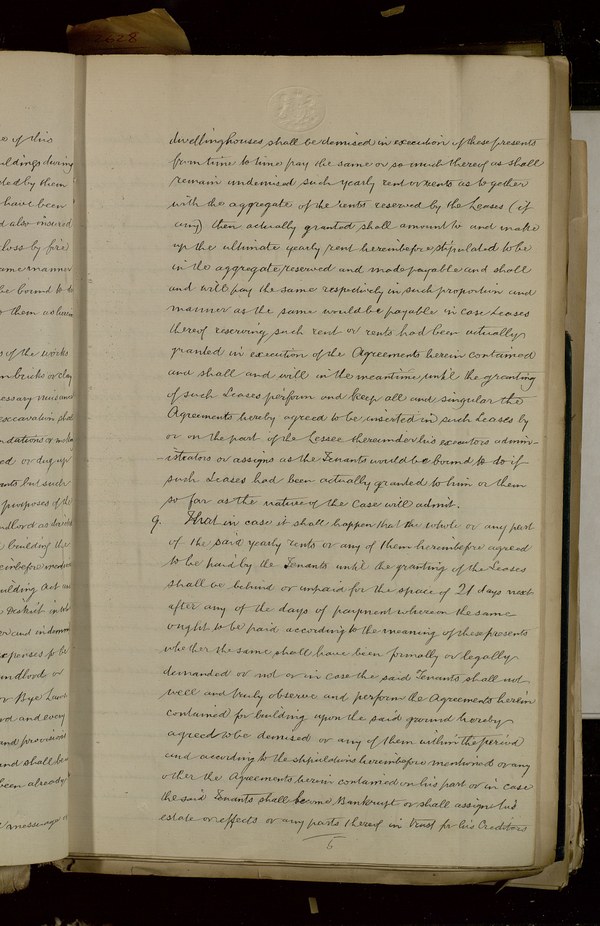 28
dwellinghouses shall be demised in execution of these presents
from time to time pay the same or so much thereof as shall
remain undemised such yearly rent or rents as together
with the aggregate of the rents reserved by the Leases (if
any) then actually granted shall amount to and make
up the ultimate yearly rent hereinbefore stipulated to be
in the aggregate reserved and made payable and shall
and will pay the same respectively in such proportion and
manner as the same would be payable in case Leases
thereof reserving such rent or rents had been actually
granted in execution of the Agreements herein contained
and shall and will in the meantime until the granting
of such Leases perform and keep all and singular the
Agreements hereby agreed to be inserted in such Leases by
or on the part of the Lessee thereunder his executors admin-
istrators or assigns as the Tenants would be bound to do if
such Leases had been actually granted to him or them
so far as the nature of the Case will admit.
9. That in case it shall happen that the whole or any part
of the said yearly rents or any of them hereinbefore agreed
to be paid by the Tenants until the granting of the Leases
shall be behind or unpaid for the space of 21 days next
after any of the days of payment whereon the same
ought to be paid according to the meaning of these presents
whether the same shall have been formally or legally
demanded or not or in case the said Tenants shall not
well and truly observe and perform the Agreements herein
contained for building upon the said ground hereby
agreed to be demised or any of them within the period
and according to the stipulations hereinbefore mentioned or any
other the Agreements herein contained on his part or in case
the said Tenants shall become Bankrupt or shall assign his
estate or effects or any parts thereof in trust for his Creditors
6
of this
buildings during
by them
have been
also insured
loss by fire
same manner
be bound to
them as
of the works
bricks or clay
excavation
or dug up
but such
purposes of the
building the
building Act
District
and
expenses to be
landlord or
or Bye Laws
and every
and provisions
and shall be
been already
messuage